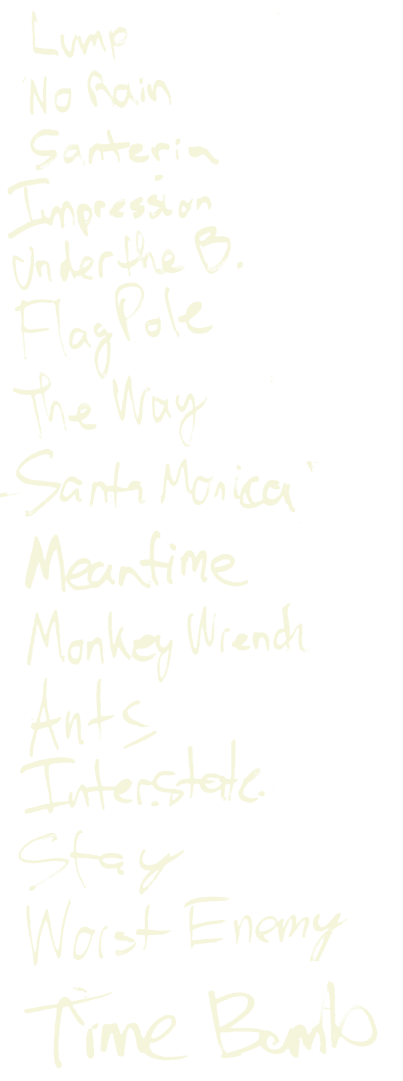 Lump
No Rain
Santeria
Impression
Under the B.
Flag Pole
The Way
Santa Monica
Meantime
Monkey Wrench
Ants
Interstate.
Stay
Worst Enemy
Time Bomb